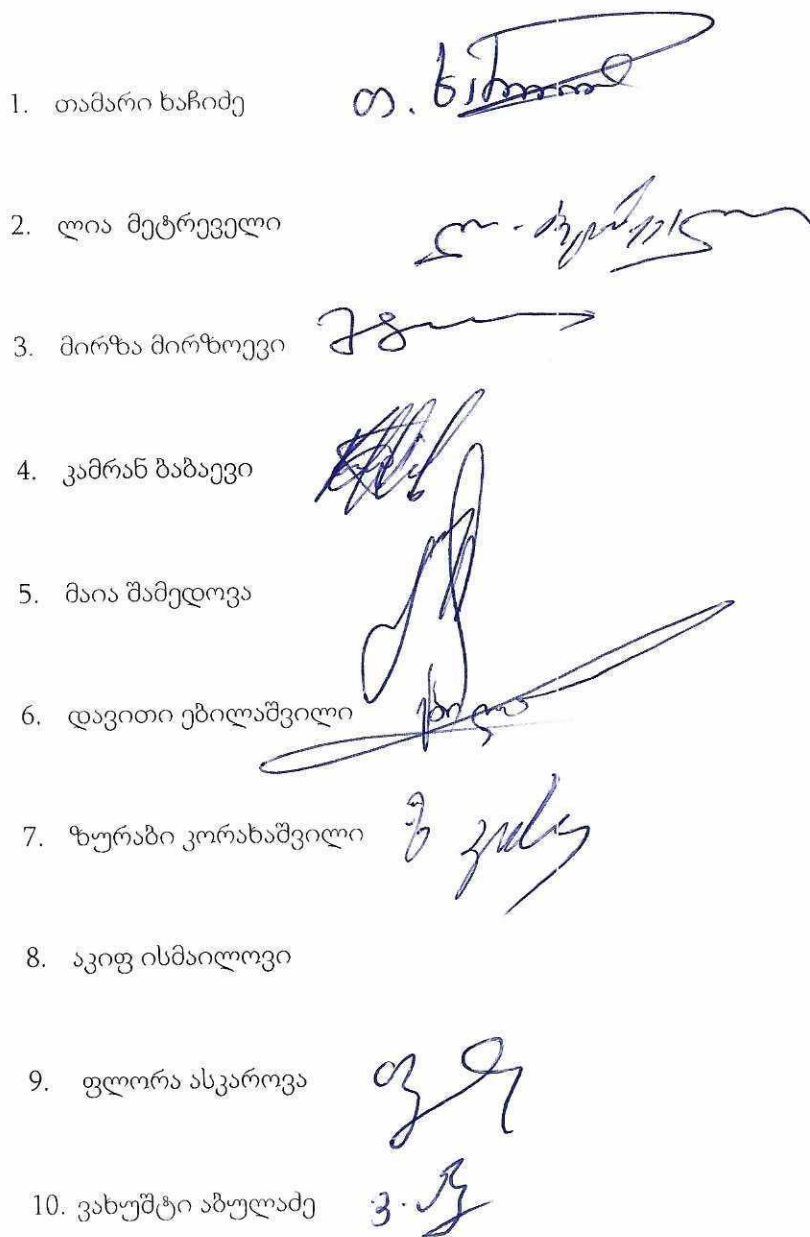 1. თამარი ხაჩიძე თ.
2. ლია მეტრეველი
3. მირზა მირზოევი
4. კამრან ბაბაევი
5. მაია შამედოვა
6. დავითი ებილაშვილი
7. ზურაბი კორახაშვილი
8. აკიფ ისმაილოვი
9. ფლორა ასკაროვა
10. ვახუშტი აბულაძე